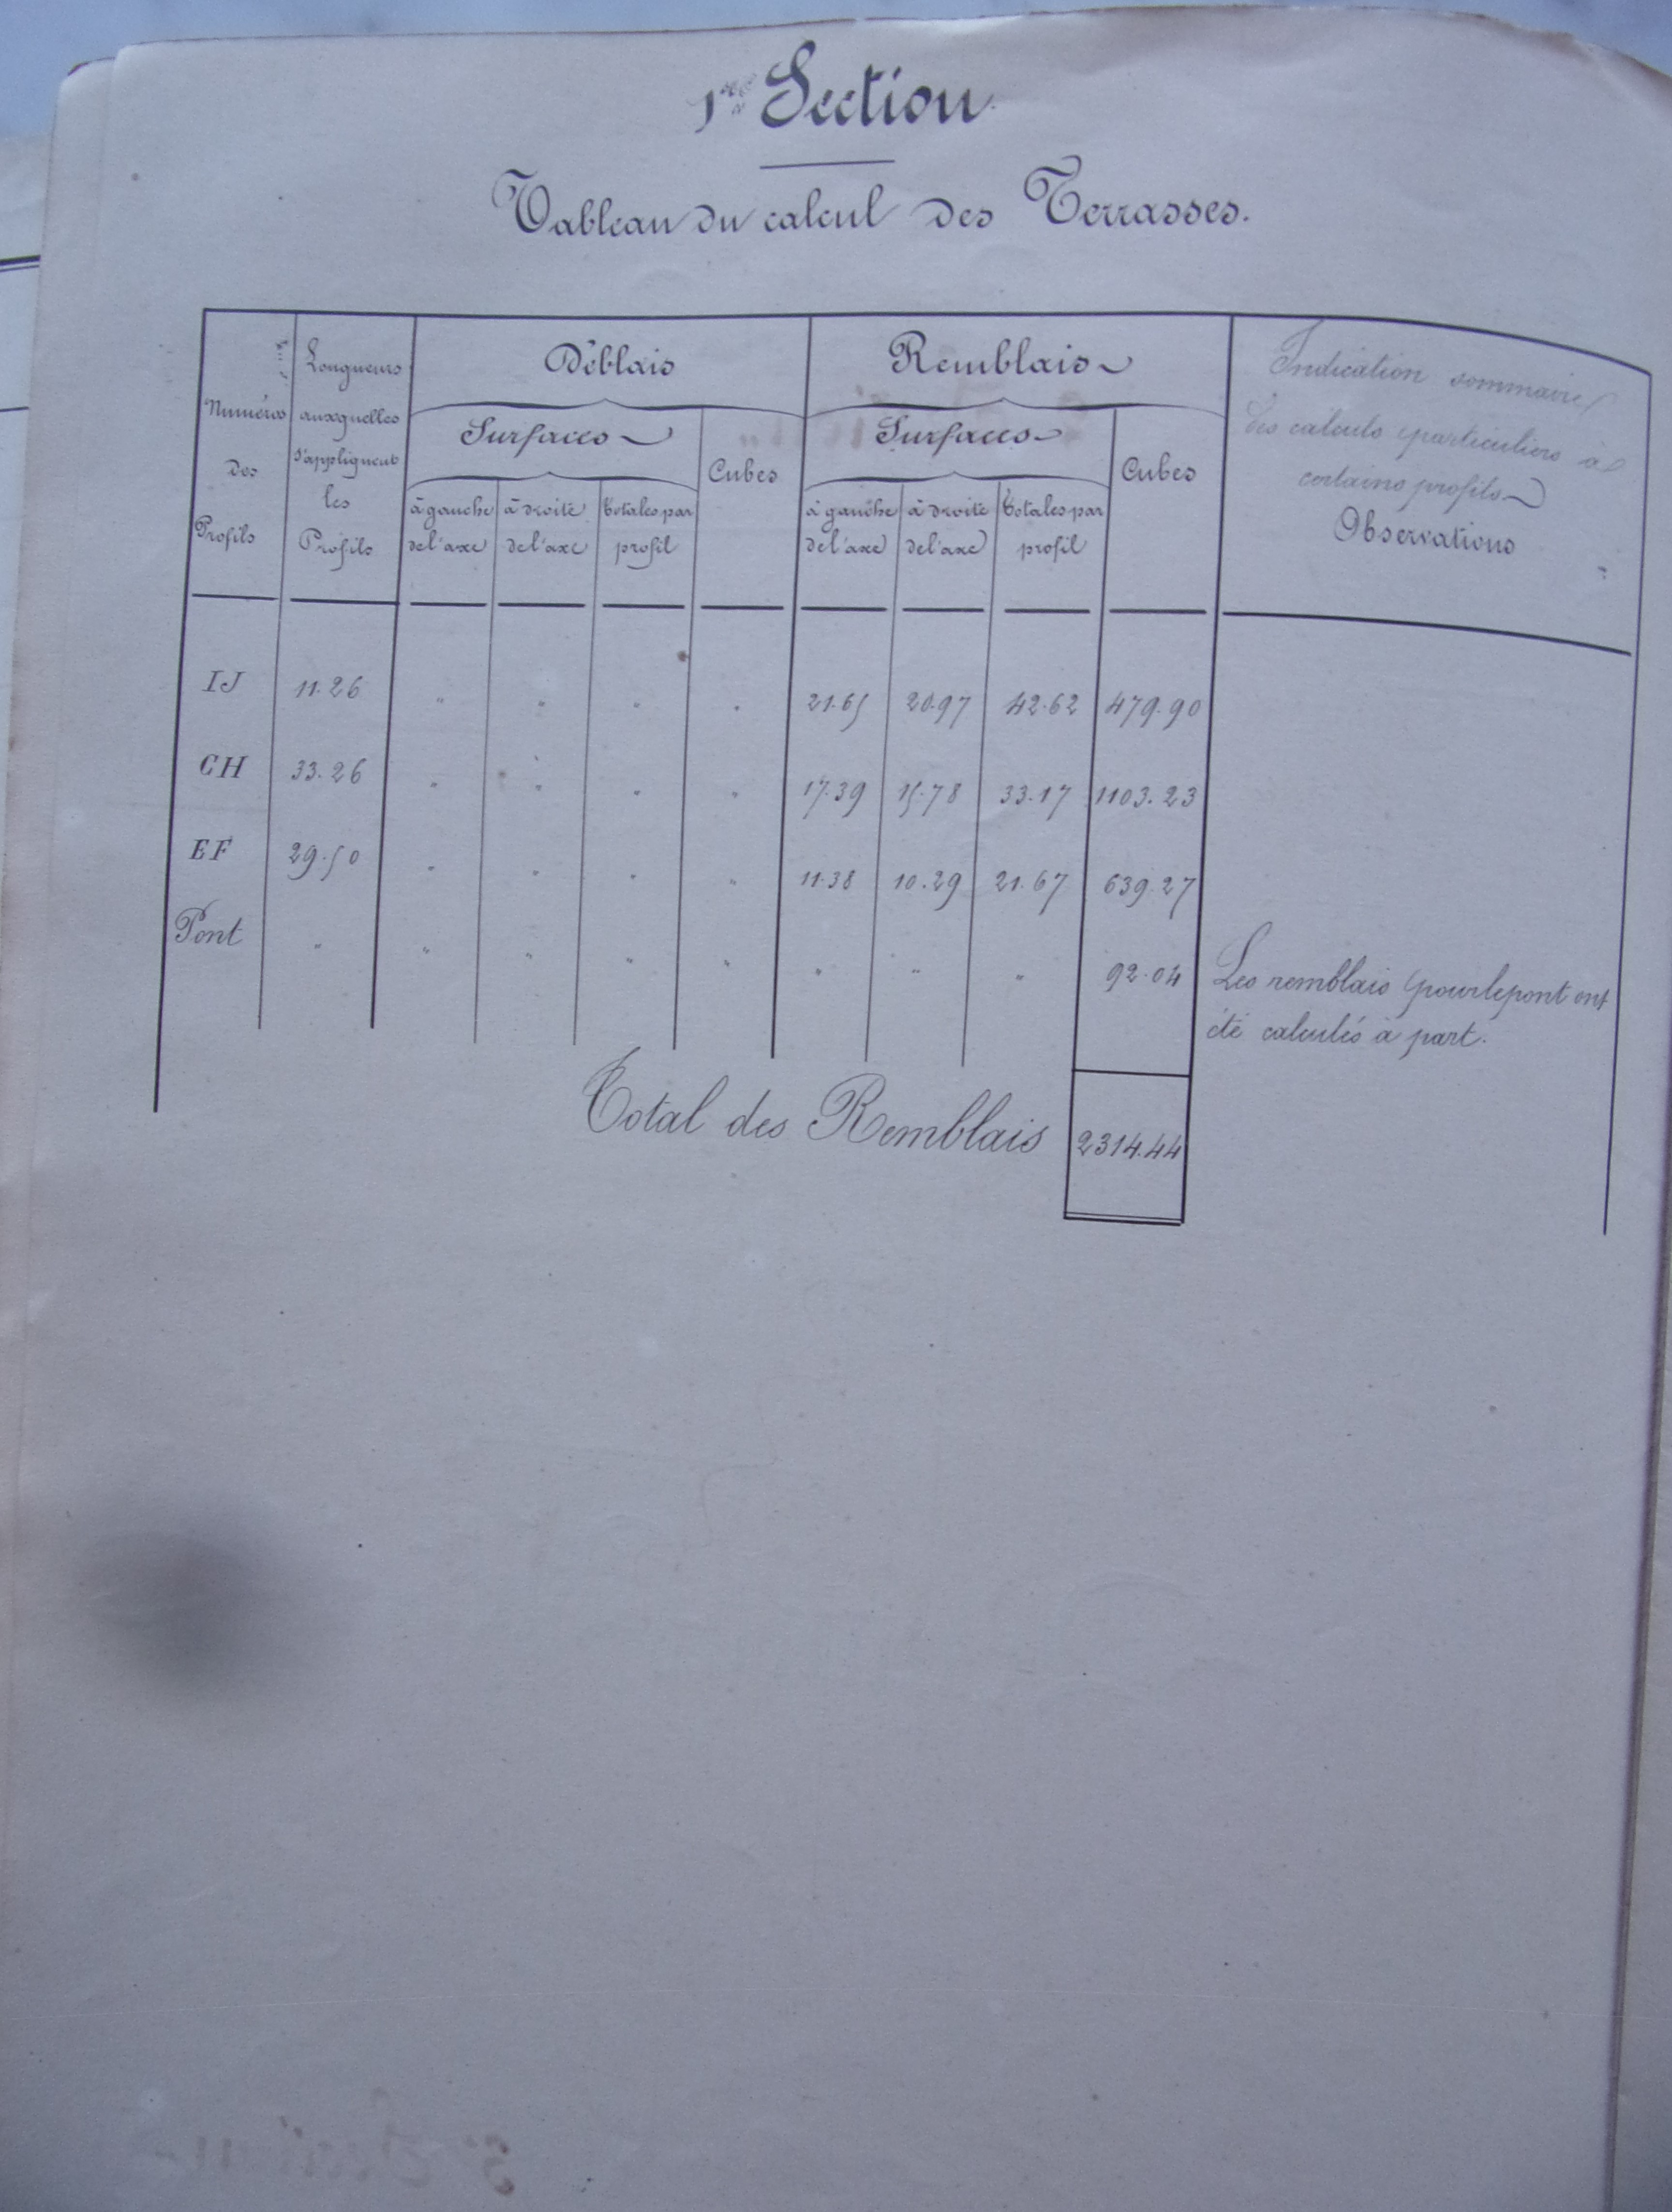 1re Section
Tableau du calcul des Terrasses.
Numéros
des
Profils
Longueurs
auxquelles
s'appliquent
les
Profils
Déblais
Surfaces
à gauche
de l'axe
à droite
de l'axe
Totales par
profil
Cubes
Remblais
Surfaces
à gauche
de l'axe
à droite
de l'axe
Totales par
profil
Cubes
Indication sommaire
des calculs particuliers à
certains profils
Observations
IJ 11.26 " " " " 21.65 20.97 42.62 479.90
CH 33.26 " " " " 17.39 15.78 33.17 1103.23
EF 29.50 " " " " 11.38 10.29 21.67 639.27
Pont " " " " " " " " 92.04 Les remblais pour le pont ont
été calculés à part.
Total des Remblais 2314.44